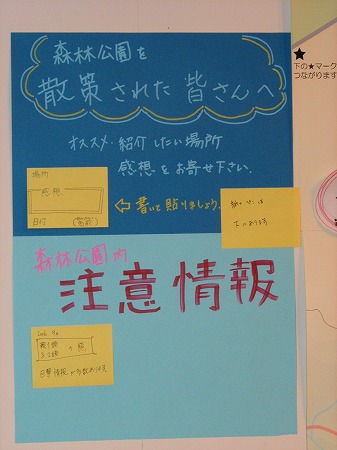 森林公園を
散策された皆さんへ
オススメ・紹介したい場所
感想をお寄せ下さい。
場所
感想
日付
(名前)
⇦書いて貼りましょう。
森林公園内
注意情報
★
下の★マーク
つながります